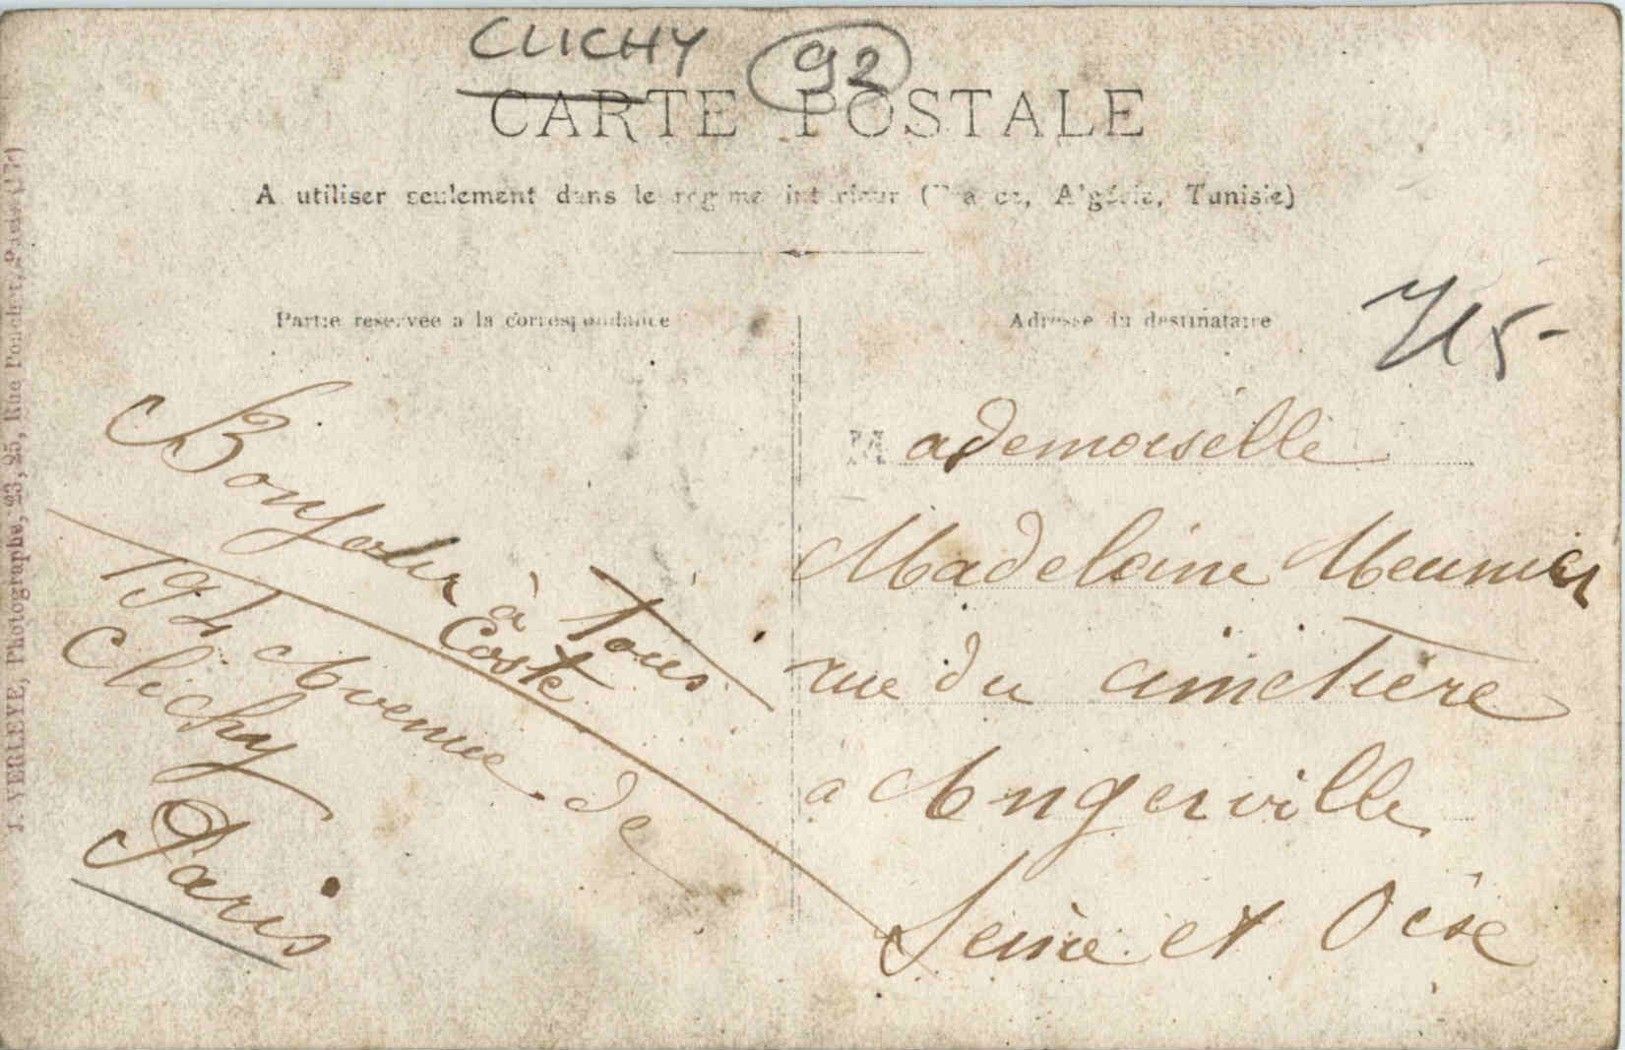 CLICHY 92
CARTE POSTALE
A utiliser seulement dans le régime intérieur (France, Algérie, Tunisie)
Partie réservée à la correspondance
Bonjour à Tous
Coste
194 Avenue de
Clichy
Paris
Adresse du destinataire
Mademoiselle
Madeleine Meunier
rue du cimetière
a Angerville
Seine et Oise
J. VERLEYE, Photographe, 23, 25, Rue Pouchet, Paris (17e)